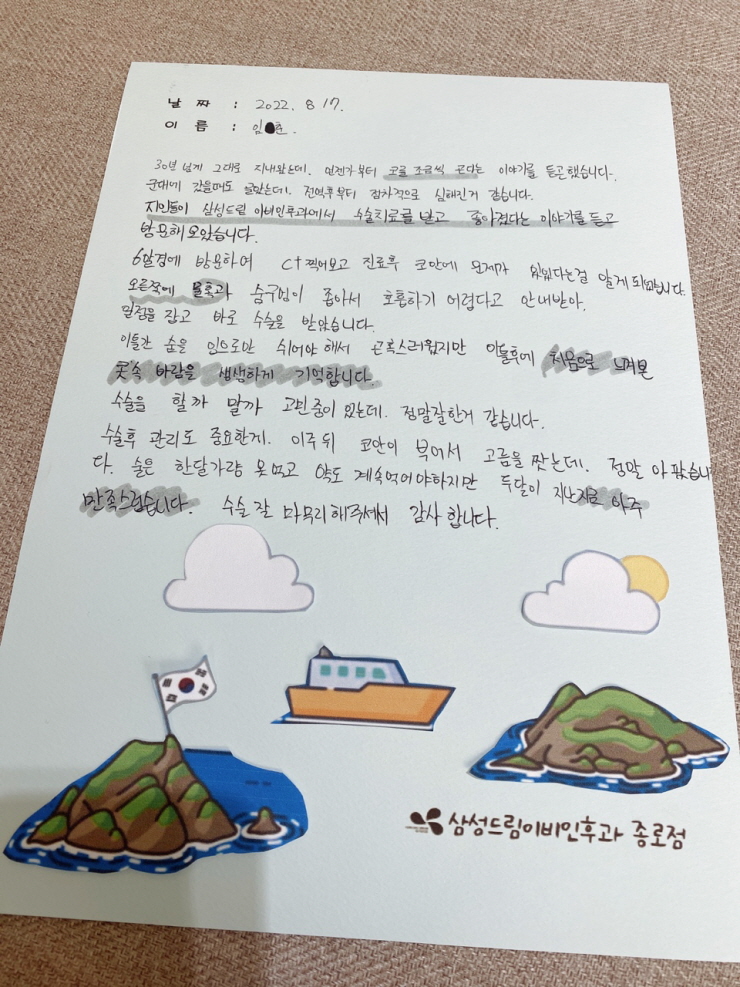 날 짜 : 2022. 8 17.
이 름 : 임 춘.
30년 넘게 그대로 지내왔는데. 언젠가부터 코를 조금씩 곤다는 이야기를 듣곤했습니다.
군대에 갔을때도 몰랐는데. 전역후부터 점차적으로 심해진거 같습니다.
지인들이 삼성드림 이비인후과에서 수술치료를 받고 좋아졌다는 이야기를 듣고
방문해보았습니다.
6월경에 방문하여 CT 찍어보고 진료후 코안에 문제가 있었다는걸 알게 되었습니다.
오른쪽에 물혹과 숨구멍이 좁아서 호흡하기 어렵다고 안내받아.
일정을 잡고 바로 수술을 받았습니다.
이틀간 숨을 입으로만 쉬어야 해서 곤혹스러웠지만 이틀후에 처음으로 느껴본
콧속 바람을 생생하게 기억합니다.
수술을 할까 말까 고민중이었는데. 정말잘한거 같습니다.
수술후 관리도 중요한게. 이주뒤 코안이 부어서 고름을 짯는데. 정말 아팠습니
다. 술은 한달가량 못먹고 약도 계속먹어야하지만 두달이 지난지금 아주
만족스럽습니다. 수술 잘 마무리해주셔서 감사합니다.
삼성드림이비인후과 종로점